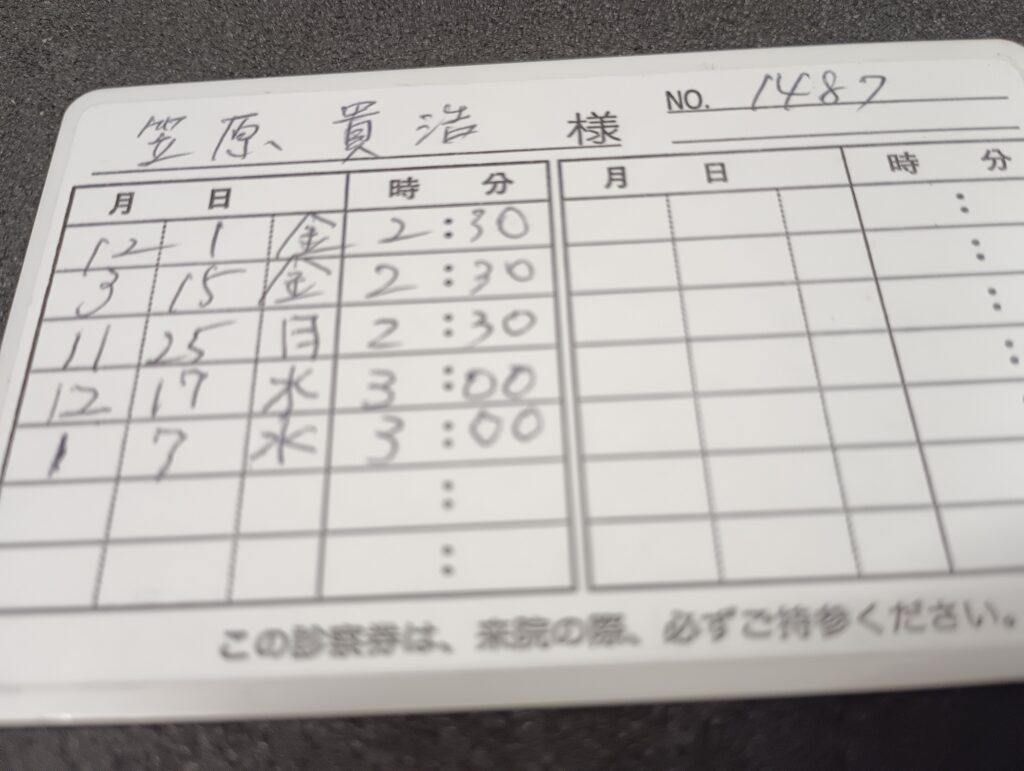 笠原 貴浩 様 NO. 1487
月 日 時 分 月 日 時 分
12 1 金 2:30 :
3 15 金 2:30 :
11 25 月 2:30 :
12 17 水 3:00 :
1 7 水 3:00
:
:
この診察券は、来院の際、必ずご持参ください。